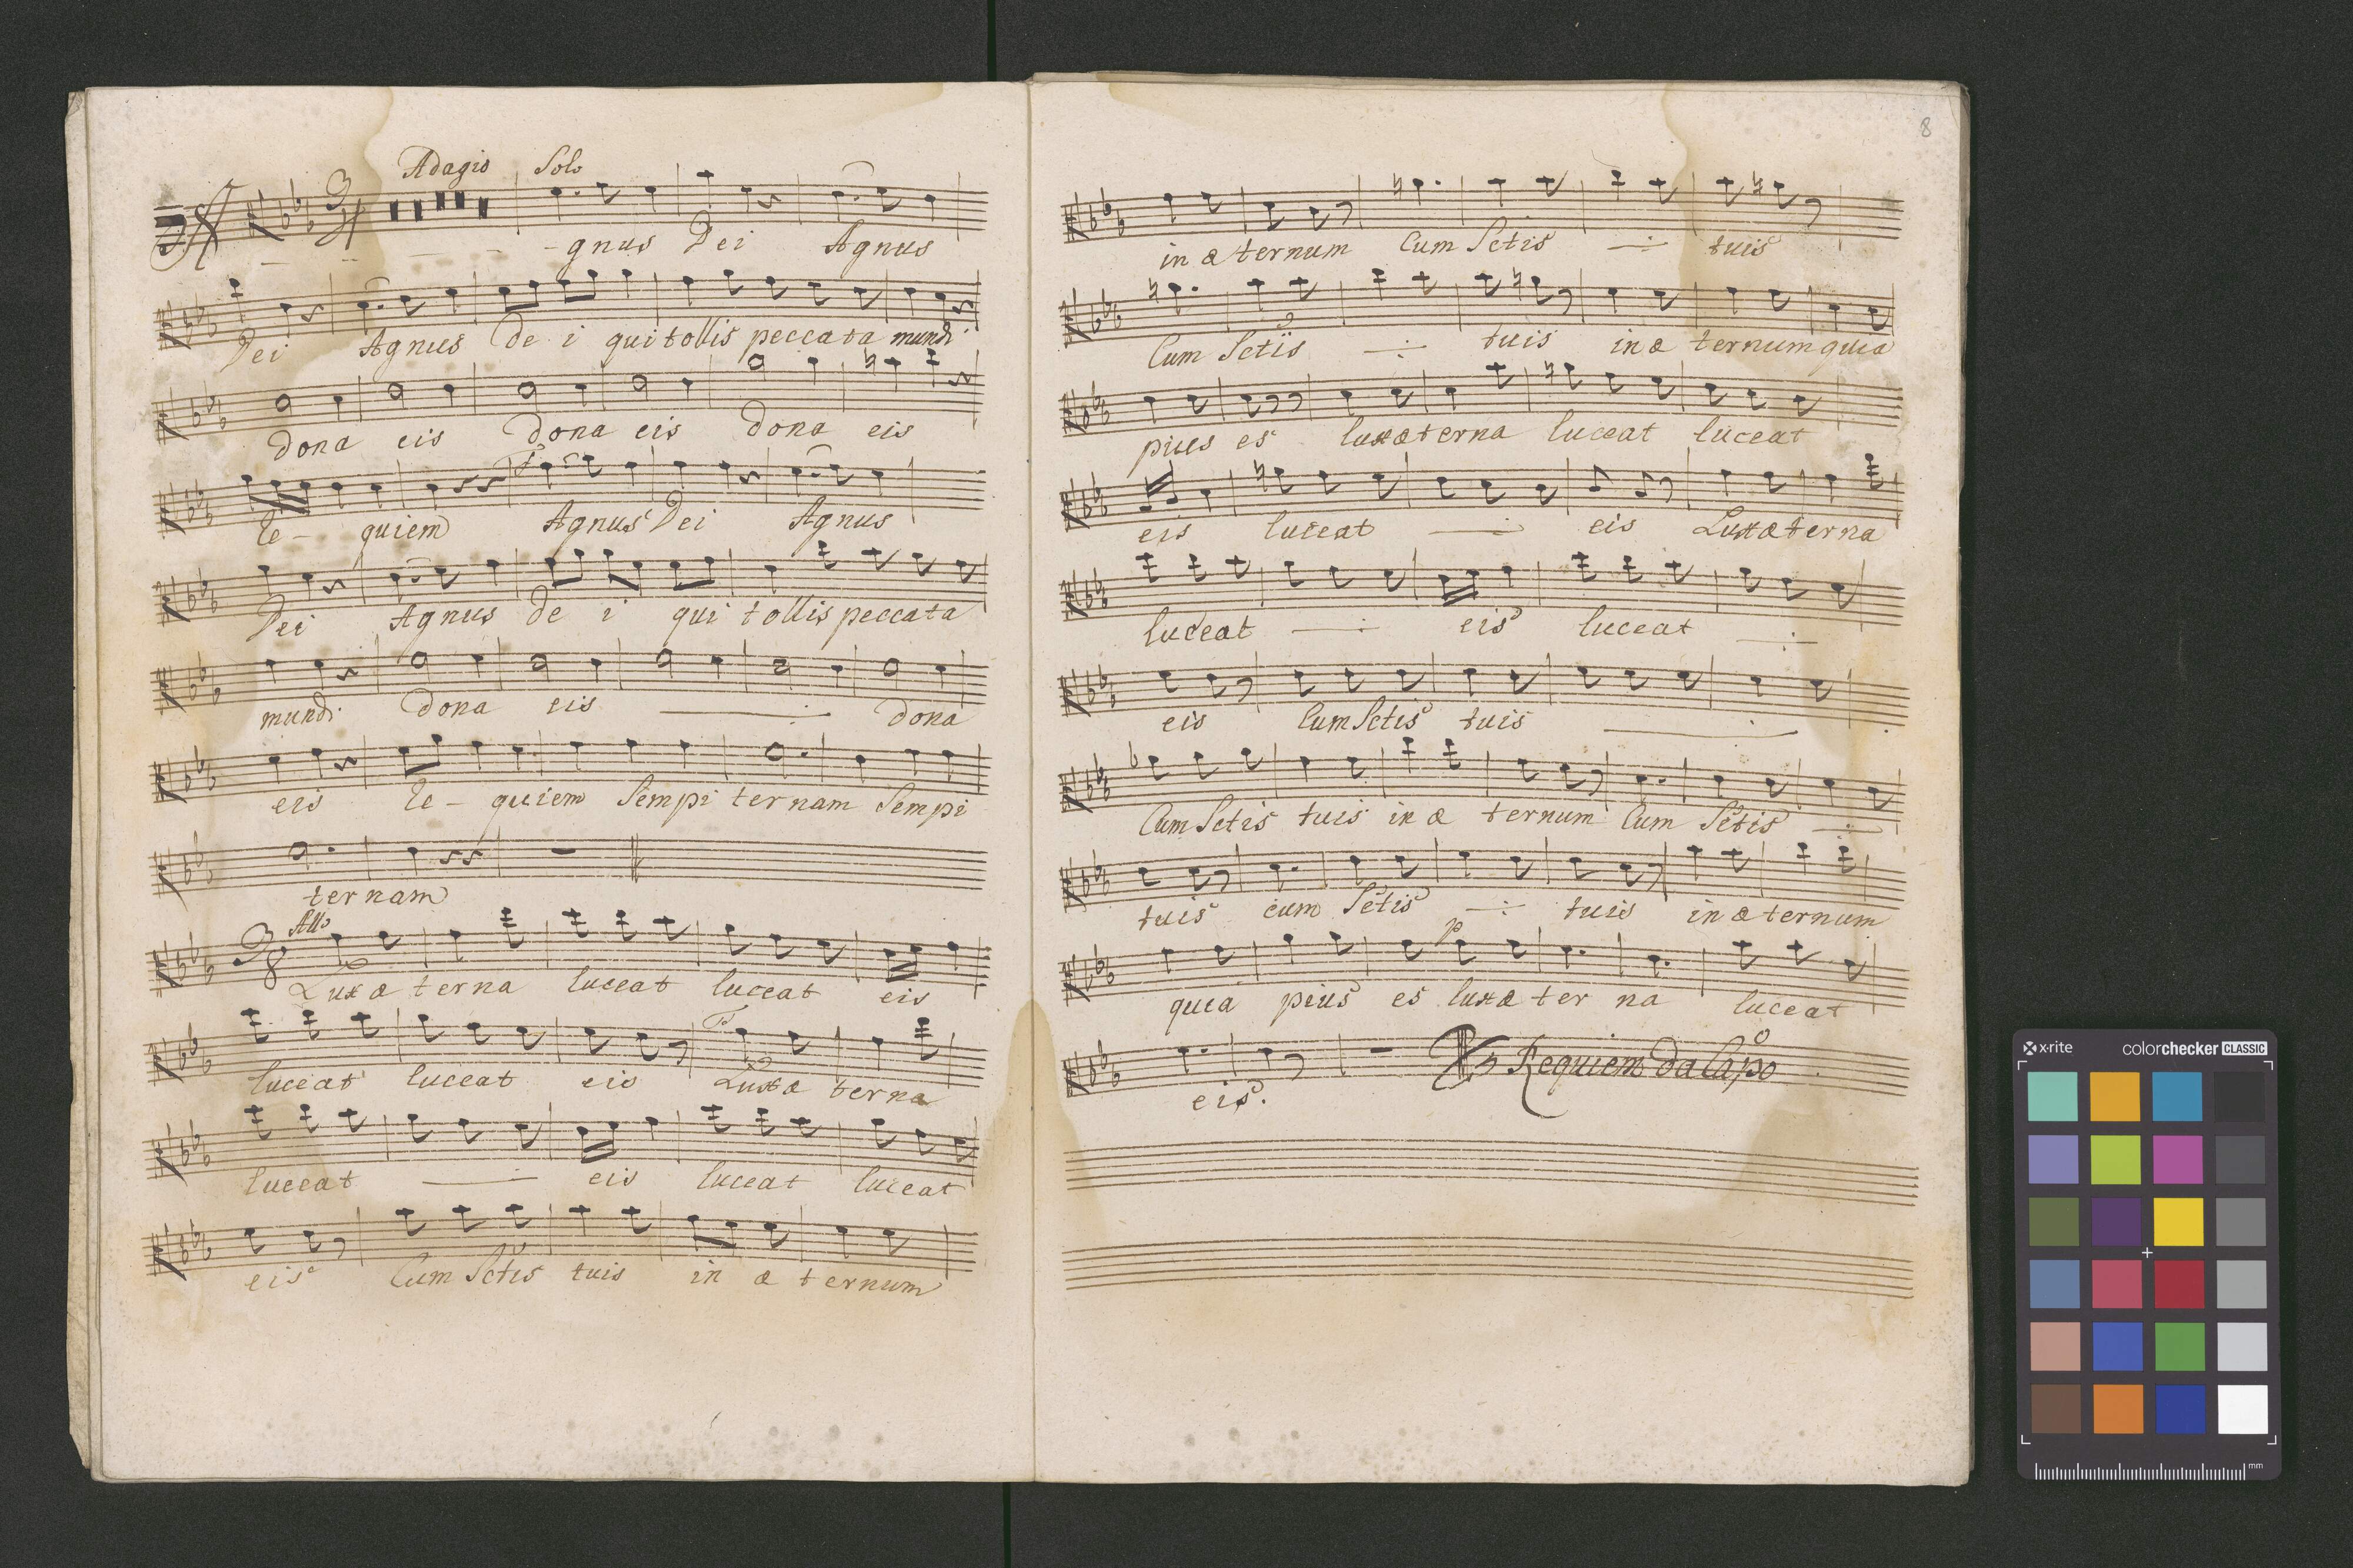 Adagio Solo
A - - gnus Dei Agnus
Dei Agnus De i qui tollis peccata mundi
Dona eis Dona eis dona eis
Re - quiem Agnus Dei Agnus
Dei Agnus De i qui tollis peccata
mundi Dona eis Dona
eis Re - quiem Sempi ternam Sempi
ternam
3/8 All:o
Lux æ terna luceat luceat eis
luceat luceat eis Lux æ terna
luceat eis luceat luceat
eis Cum Sctis tuis in æ ternum
8
in æ ternum Cum Sctis tuis
Cum Sctis tuis in æ ternum quia
pius es lux æterna luceat luceat
eis luceat eis Lux æterna
luceat eis luceat
eis Cum Sctis tuis
Cum Sctis tuis in æ ternum Cum Sctis
tuis cum Sctis tuis in æ ternum
p
quia pius es lux æ ter na luceat
eis. Requiem Da Capo
x-rite colorchecker CLASSIC
mm